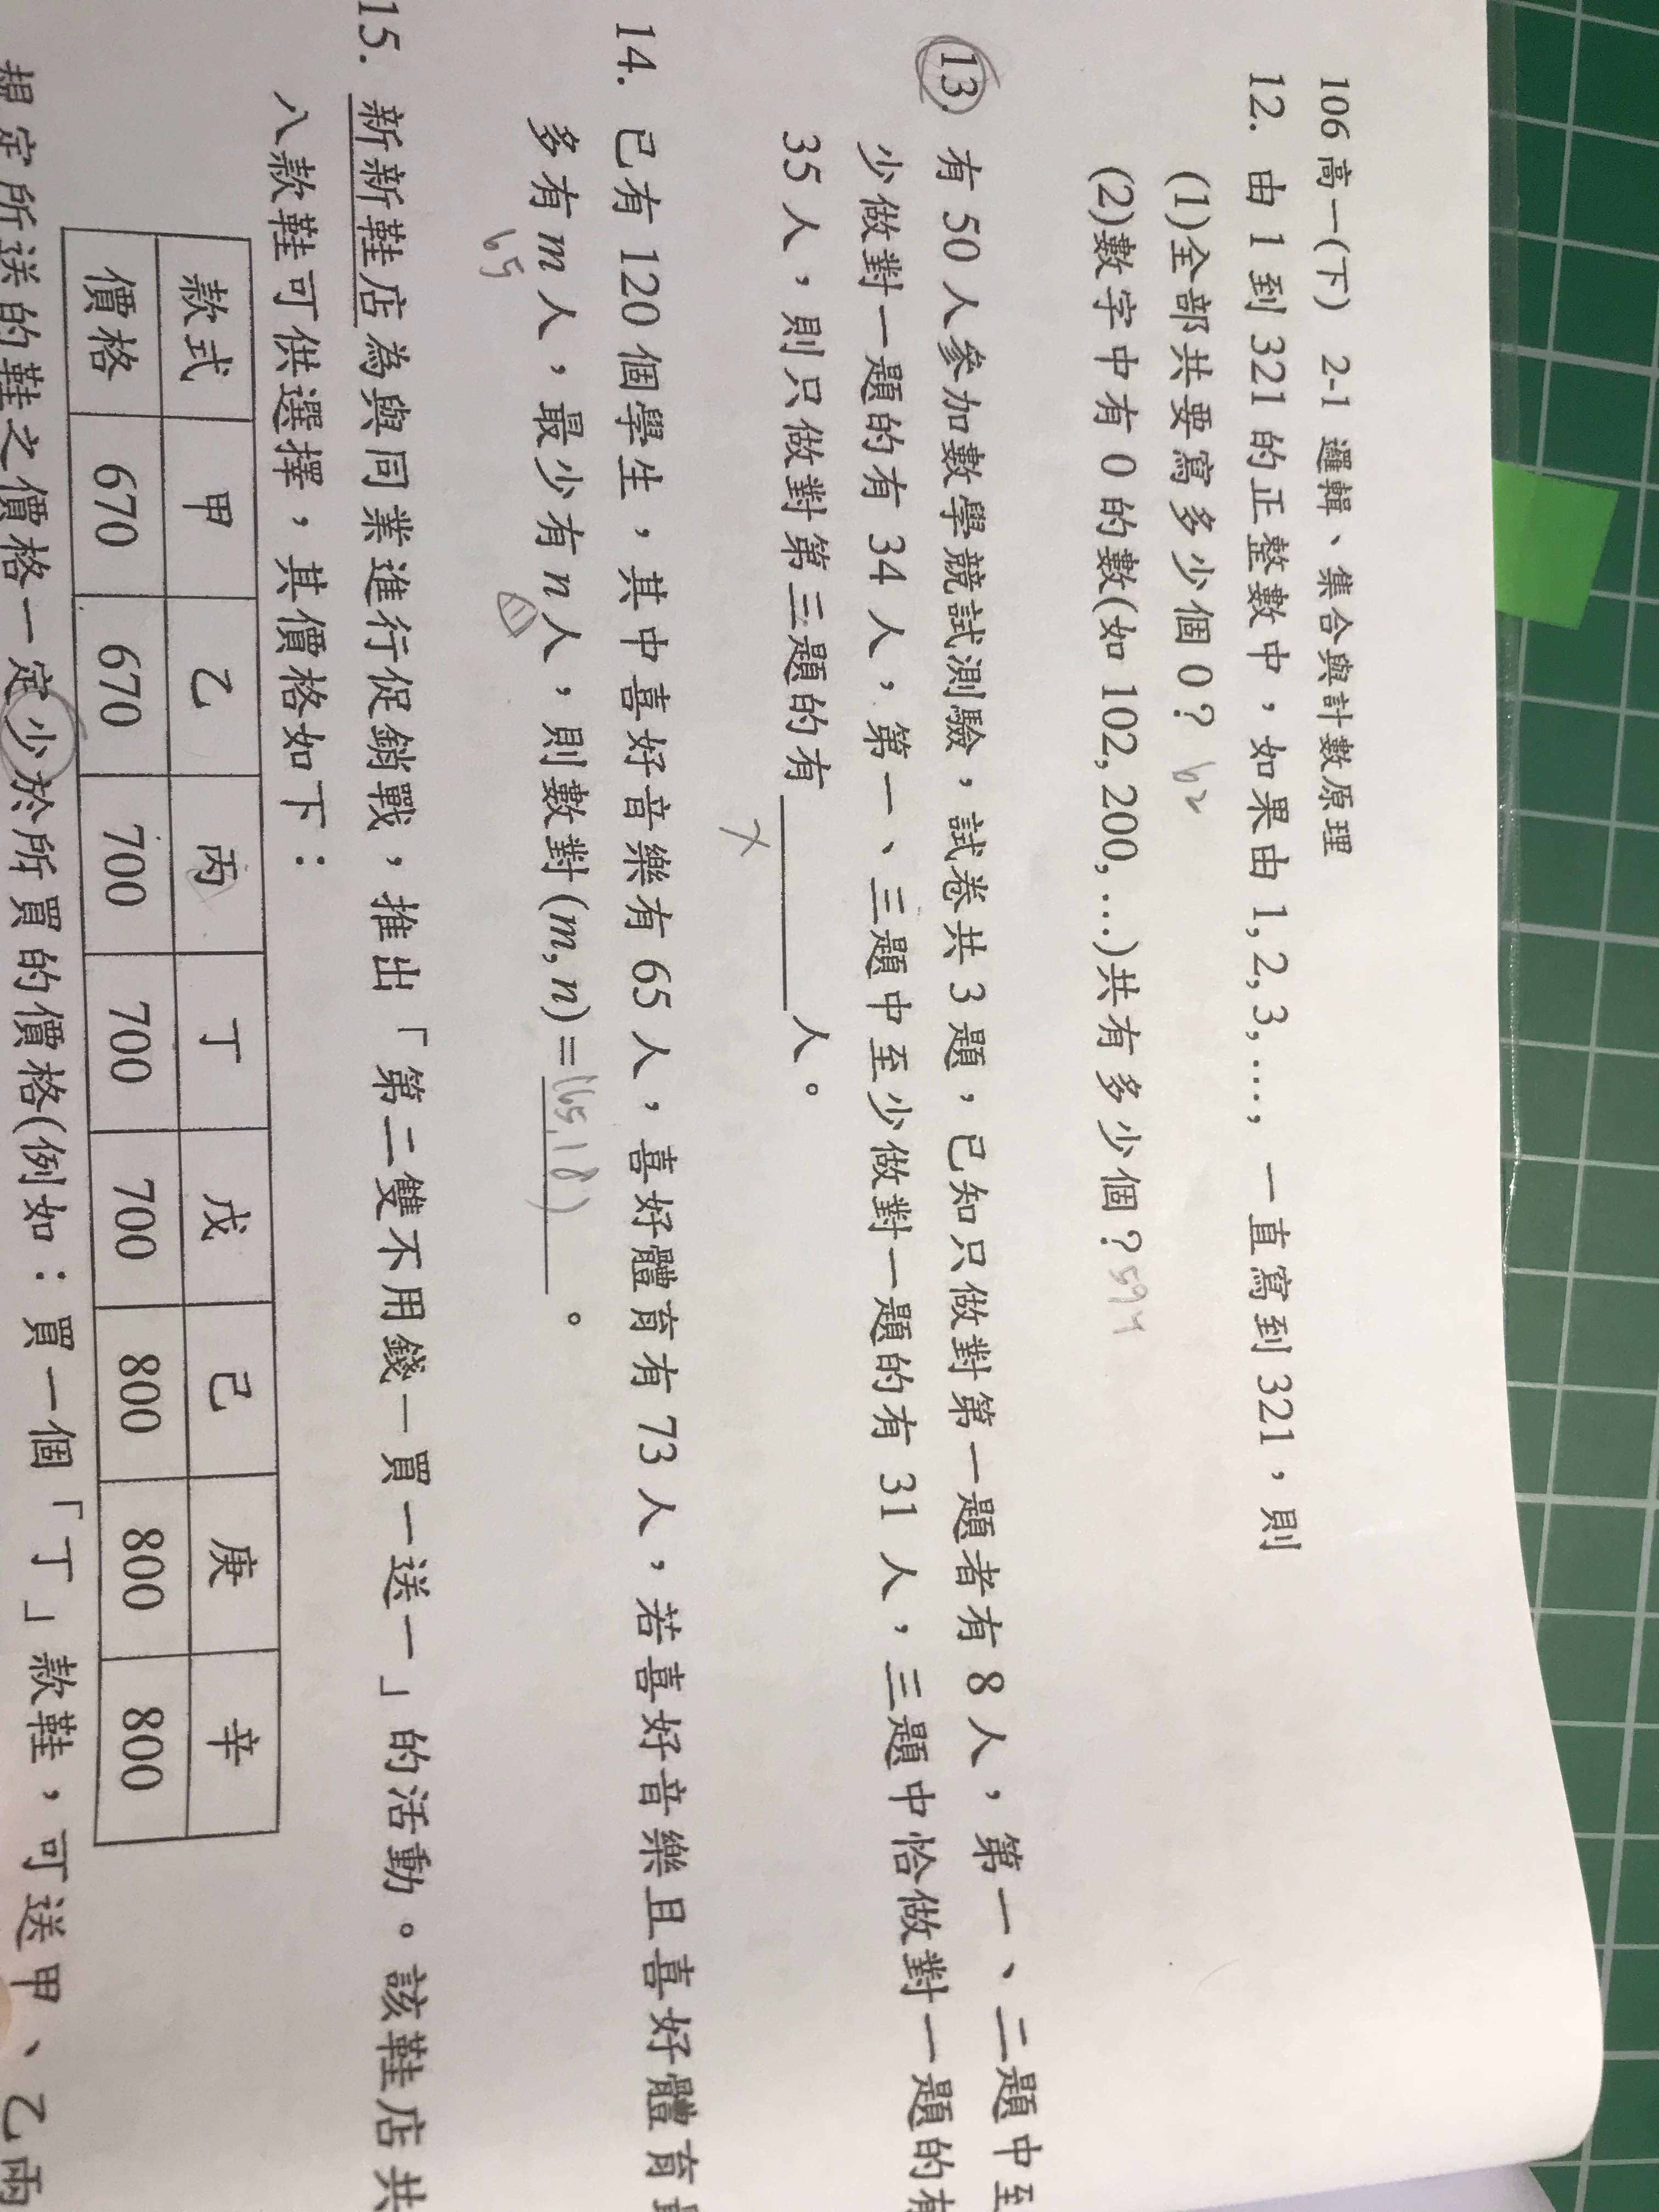 106 高一(下) 2-1 邏輯、集合與計數原理
12. 由 1 到 321 的正整數中，如果由 1, 2, 3, …, 一直寫到 321，則
(1)全部共要寫多少個 0？ 62
(2)數字中有 0 的數(如 102, 200, …)共有多少個？
13. 有 50 人參加數學競試測驗，試卷共 3 題，已知只做對第一題者有 8 人，第一、二題中至
少做對一題的有 34 人，第一、三題中至少做對一題的有 31 人，三題中恰做對一題的有
35 人，則只做對第三題的有＿＿＿＿人。
14. 已有 120 個學生，其中喜好音樂有 65 人，喜好體育有 73 人，若喜好音樂且喜好體育
多有 m 人，最少有 n 人，則數對(m, n)= (65,18) 。
65
15. 新新鞋店為與同業進行促銷戰，推出「第二雙不用錢—買一送一」的活動。該鞋店共
八款鞋可供選擇，其價格如下：
款式 甲 乙 丙 丁 戊 己 庚 辛
價格 670 670 700 700 700 800 800 800
規定所送的鞋之價格一定少於所買的價格(例如：買一個「丁」款鞋，可送甲、乙兩